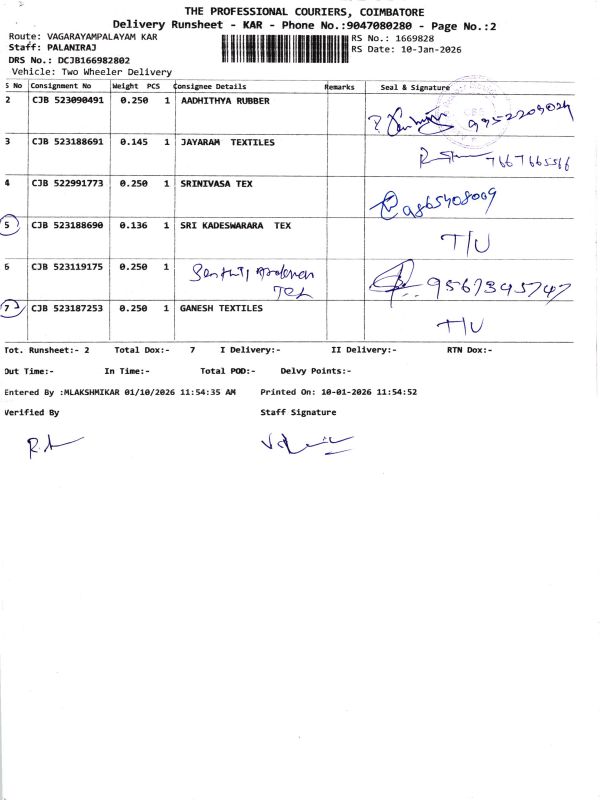 THE PROFESSIONAL COURIERS, COIMBATORE
Delivery Runsheet - KAR - Phone No.:9047080280 - Page No.:2
Route: VAGARAYAMPALAYAM KAR RS No.: 1669828
Staff: PALANIRAJ RS Date: 10-Jan-2026
DRS No.: DCJB166982802
Vehicle: Two Wheeler Delivery
S No Consignment No Weight PCS Consignee Details Remarks Seal & Signature
2 CJB 523090491 0.250 1 AADHITHYA RUBBER
3 CJB 523188691 0.145 1 JAYARAM TEXTILES
4 CJB 522991773 0.250 1 SRINIVASA TEX
5 CJB 523188690 0.136 1 SRI KADESWARARA TEX T/U
6 CJB 523119175 0.250 1 Tex 9567345747
7 CJB 523187253 0.250 1 GANESH TEXTILES T/U
Tot. Runsheet:- 2 Total Dox:- 7 I Delivery:- II Delivery:- RTN Dox:-
Out Time:- In Time:- Total POD:- Delvy Points:-
Entered By :MLAKSHMIKAR 01/10/2026 11:54:35 AM Printed On: 10-01-2026 11:54:52
Verified By Staff Signature